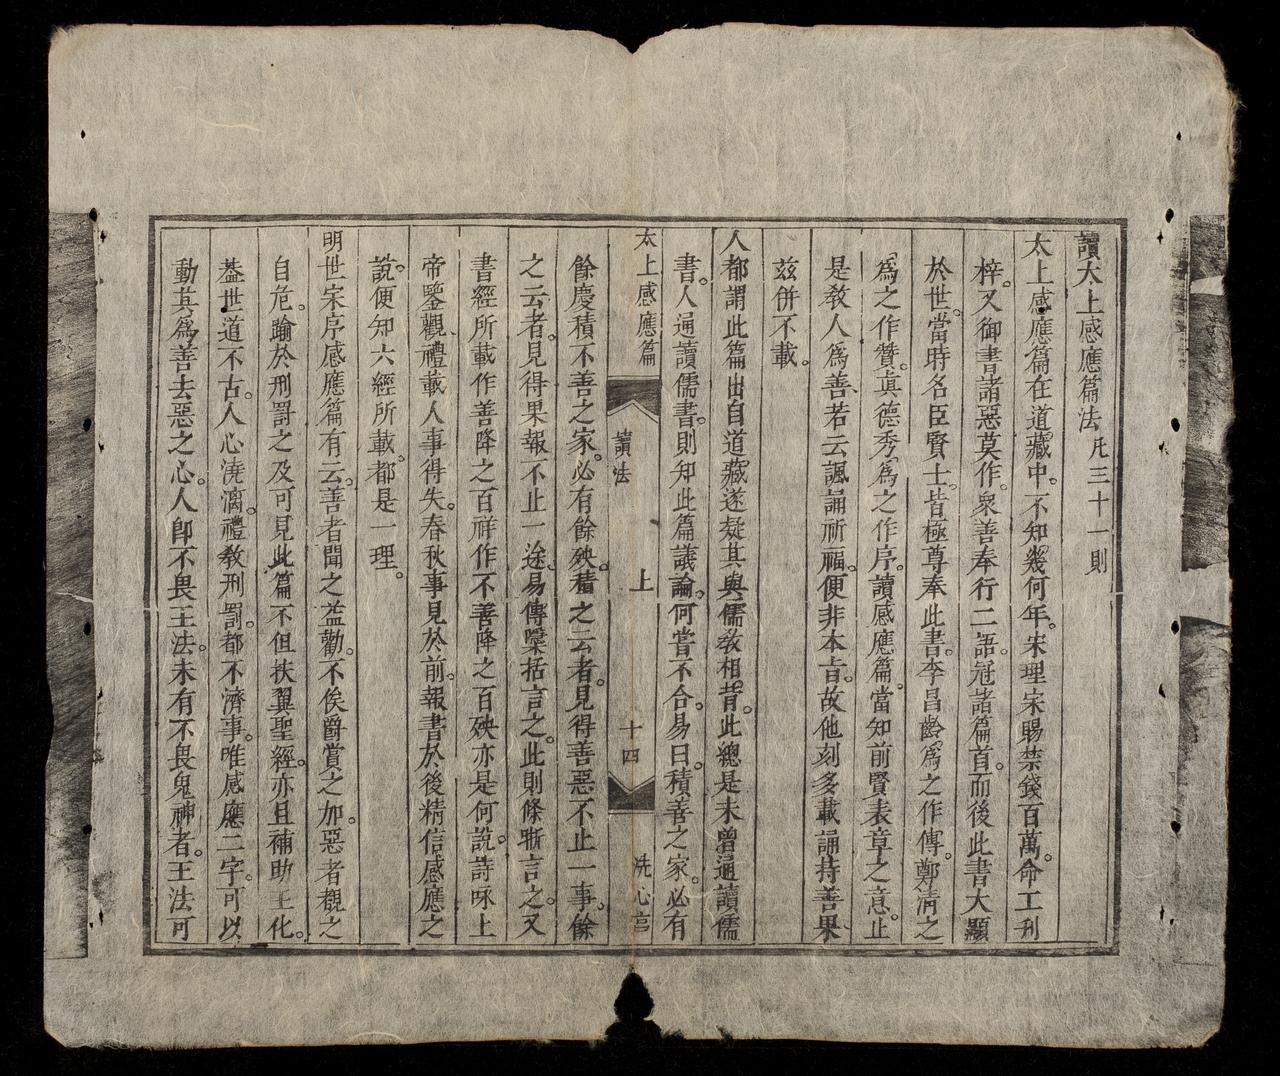 讀太上感應篇法凡三十一則
太上感應篇在道藏中。不知幾何年。宋理宋賜禁錢百萬。命工刋
梓。又御書諸惡莫作。衆善奉行二語。冠諸篇首。而後此書大顯
於世。當時名臣賢士。皆極尊奉此書。李昌齡爲之作傳。鄭清之
爲之作贊。眞德秀爲之作序。讀感應篇。當知前賢表章之意。止
是敎人爲善。若云諷誦祈福。便非本旨。故他刻多載誦持善果
兹併不載。
人都謂此篇出自道藏。遂疑其與儒敎相背。此總是未曾通讀儒
書。人通讀儒書。則知此篇議論。何嘗不合。易曰。積善之家。必有
太上感應篇 讀法 上 十四 洗心宫
餘慶積不善之家。必有餘殃。積之云者。見得善惡不止一事。餘
之云者。見得果報不止一途。易傳檃括言之。此則條晰言之。又
書經所載作善降之百祥作不善降之百殃亦是何說。詩咏上
帝鑒觀、禮載人事得失。春秋事見於前。報書於後精信感應之
說。便知六經所載。都是一理。
明世宋序感應篇有云。善者聞之益勸。不俟爵賞之加。惡者觀之
自危。踰於刑罰之及可見此篇不但扶翼聖經。亦且補助王化。
葢世道不古。人心澆漓。禮敎刑罰。都不濟事。唯感應二字。可以
動其爲善去惡之心。人卽不畏王法。未有不畏鬼神者。王法可